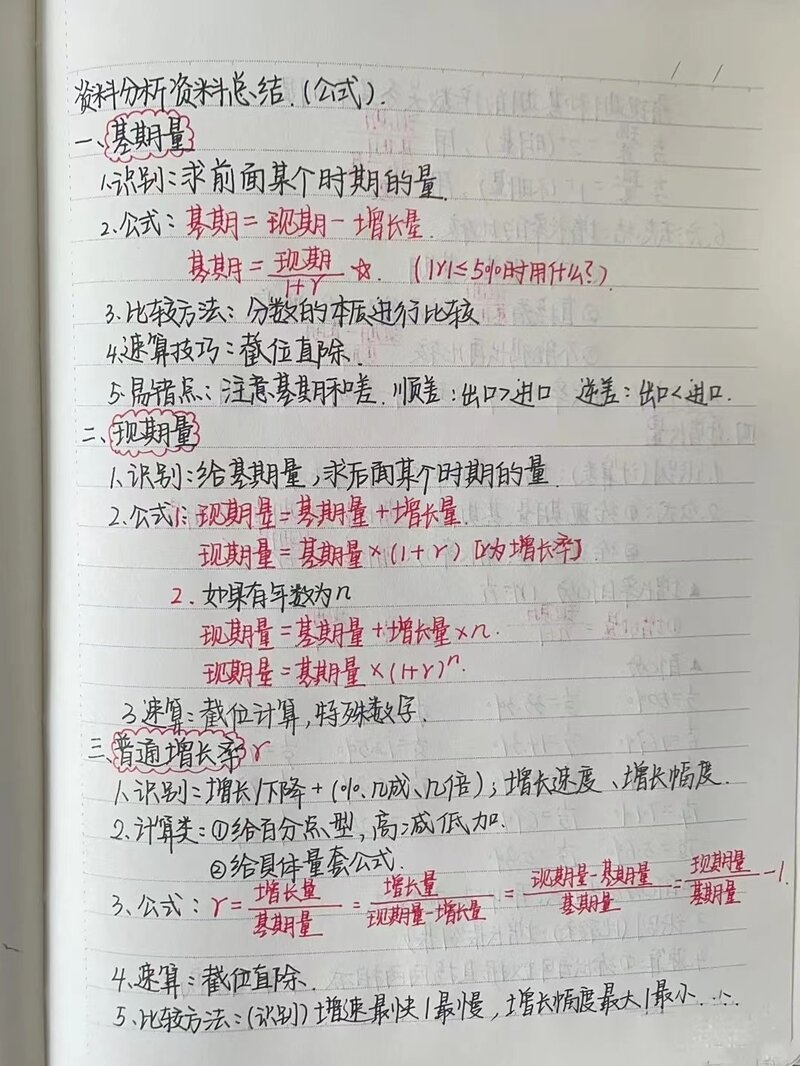 资料分析资料总结.(公式).
一、基期量
1.识别:求前面某个时期的量.
2.公式:基期=现期-增长量.
基期=现期/1+r ☆. (|r|≤5%时用什么?)
3.比较方法:分数的本质进行比较
4.速算技巧:截位直除.
5.易错点:注意基期和差.顺差:出口>进口 逆差:出口<进口.
二、现期量
1.识别:给基期量,求后面某个时期的量.
2.公式1:现期量=基期量+增长量.
现期量=基期量×(1+r) [r为增长率]
2.如果有年数为n
现期量=基期量+增长量×n.
现期量=基期量×(1+r)ⁿ
3.速算:截位计算,特殊数字.
三、普通增长率r
1.识别:增长/下降+(%、几成、几倍);增长速度、增长幅度.
2.计算类:①给百分点型,高减低加.
②给具体量套公式.
3、公式:r=增长量/基期量=增长量/现期量-增长量=现期量-基期量/基期量=现期量/基期量-1.
4.速算:截位直除.
5.比较方法:(识别)增速最快/最慢,增长幅度最大/最小.…